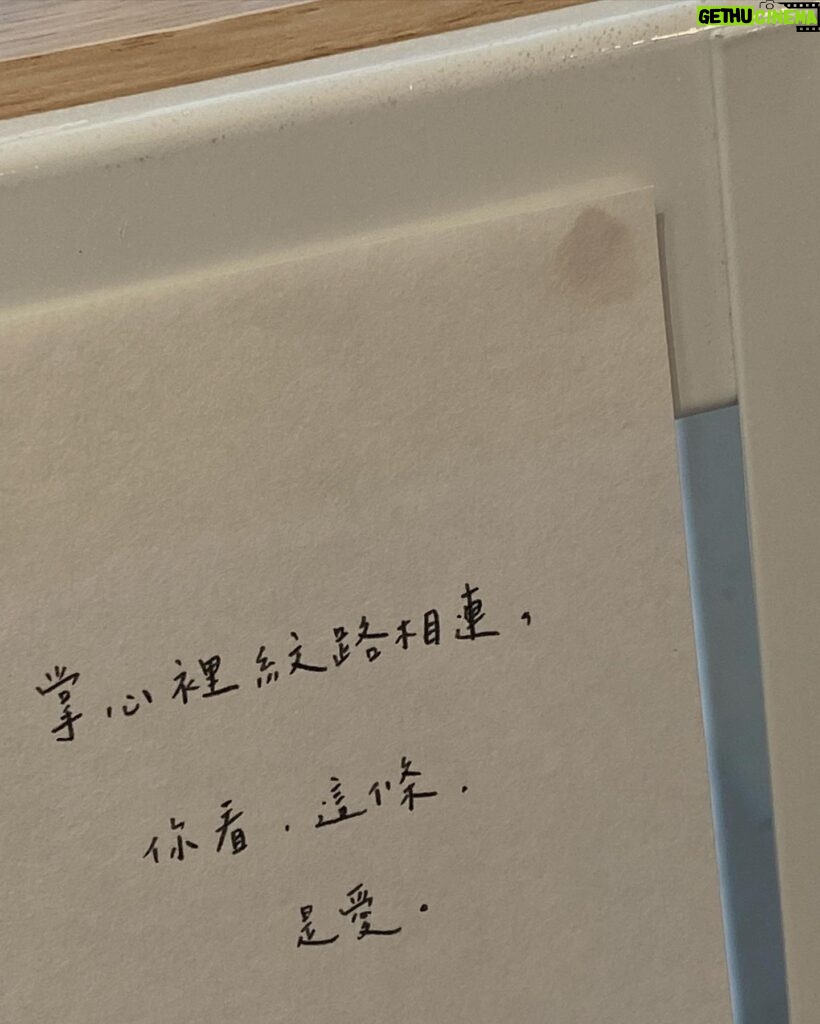 GETHUCINEMA
掌心裡紋路相連，
你看，這條，
是愛．